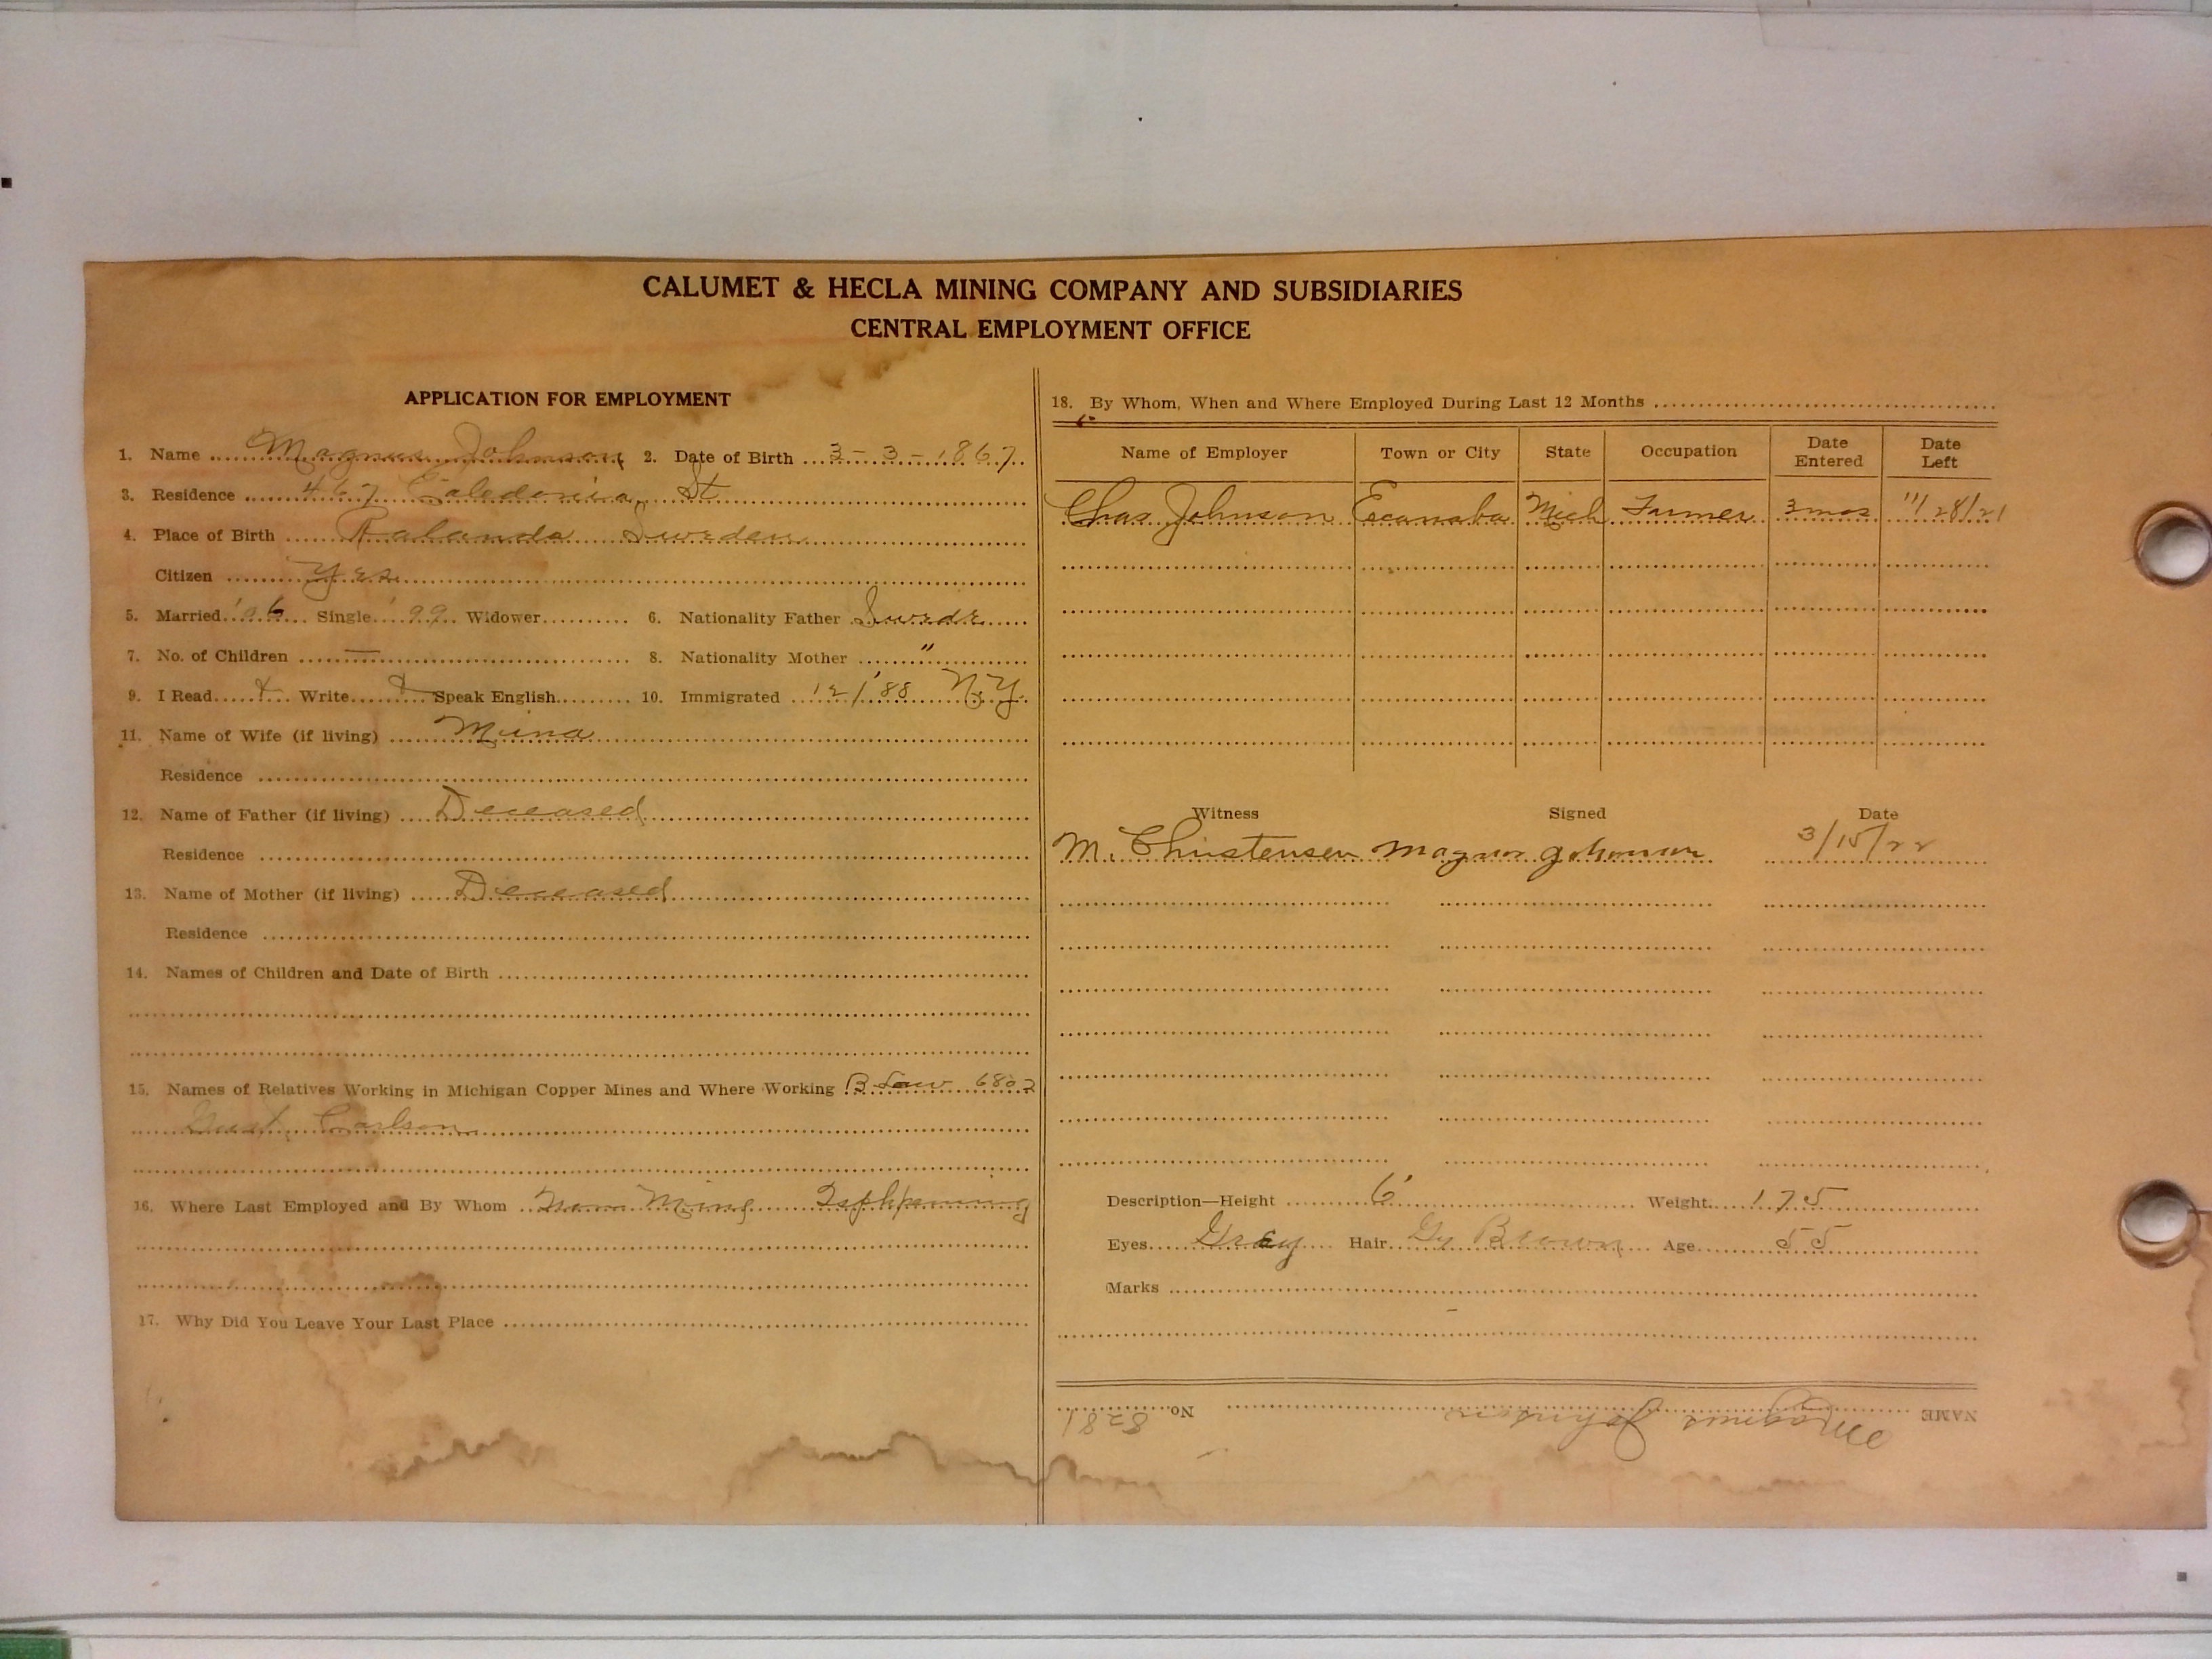 CALUMET & HECLA MINING COMPANY AND SUBSIDIARIES
CENTRAL EMPLOYMENT OFFICE
APPLICATION FOR EMPLOYMENT
1. Name Magnus Johnson 2. Date of Birth 3-3-1867
3. Residence 467 Caledonia St
4. Place of Birth Ralanda Sweden
Citizen Yes
5. Married '06 Single '99 Widower 6. Nationality Father Swede
7. No. of Children — 8. Nationality Mother "
9. I Read Write Speak English 10. Immigrated 12/'88 N.Y.
11. Name of Wife (if living) Mina
Residence
12. Name of Father (if living) Deceased
Residence
13. Name of Mother (if living) Deceased
Residence
14. Names of Children and Date of Birth
15. Names of Relatives Working in Michigan Copper Mines and Where Working B. Law 6802
Gust Carlson
16. Where Last Employed and By Whom
17. Why Did You Leave Your Last Place
18. By Whom, When and Where Employed During Last 12 Months
Name of Employer Town or City State Occupation Date Entered Date Left
Chas Johnson Escanaba Mich Farmer 3 mos 11/28/21
Witness Signed Date
M. Christensen Magnus Johnson 3/15/22
Description—Height 6' Weight 175
Eyes Gray Hair Gy Brown Age 55
Marks
NAME Magnus Johnson No. 8281